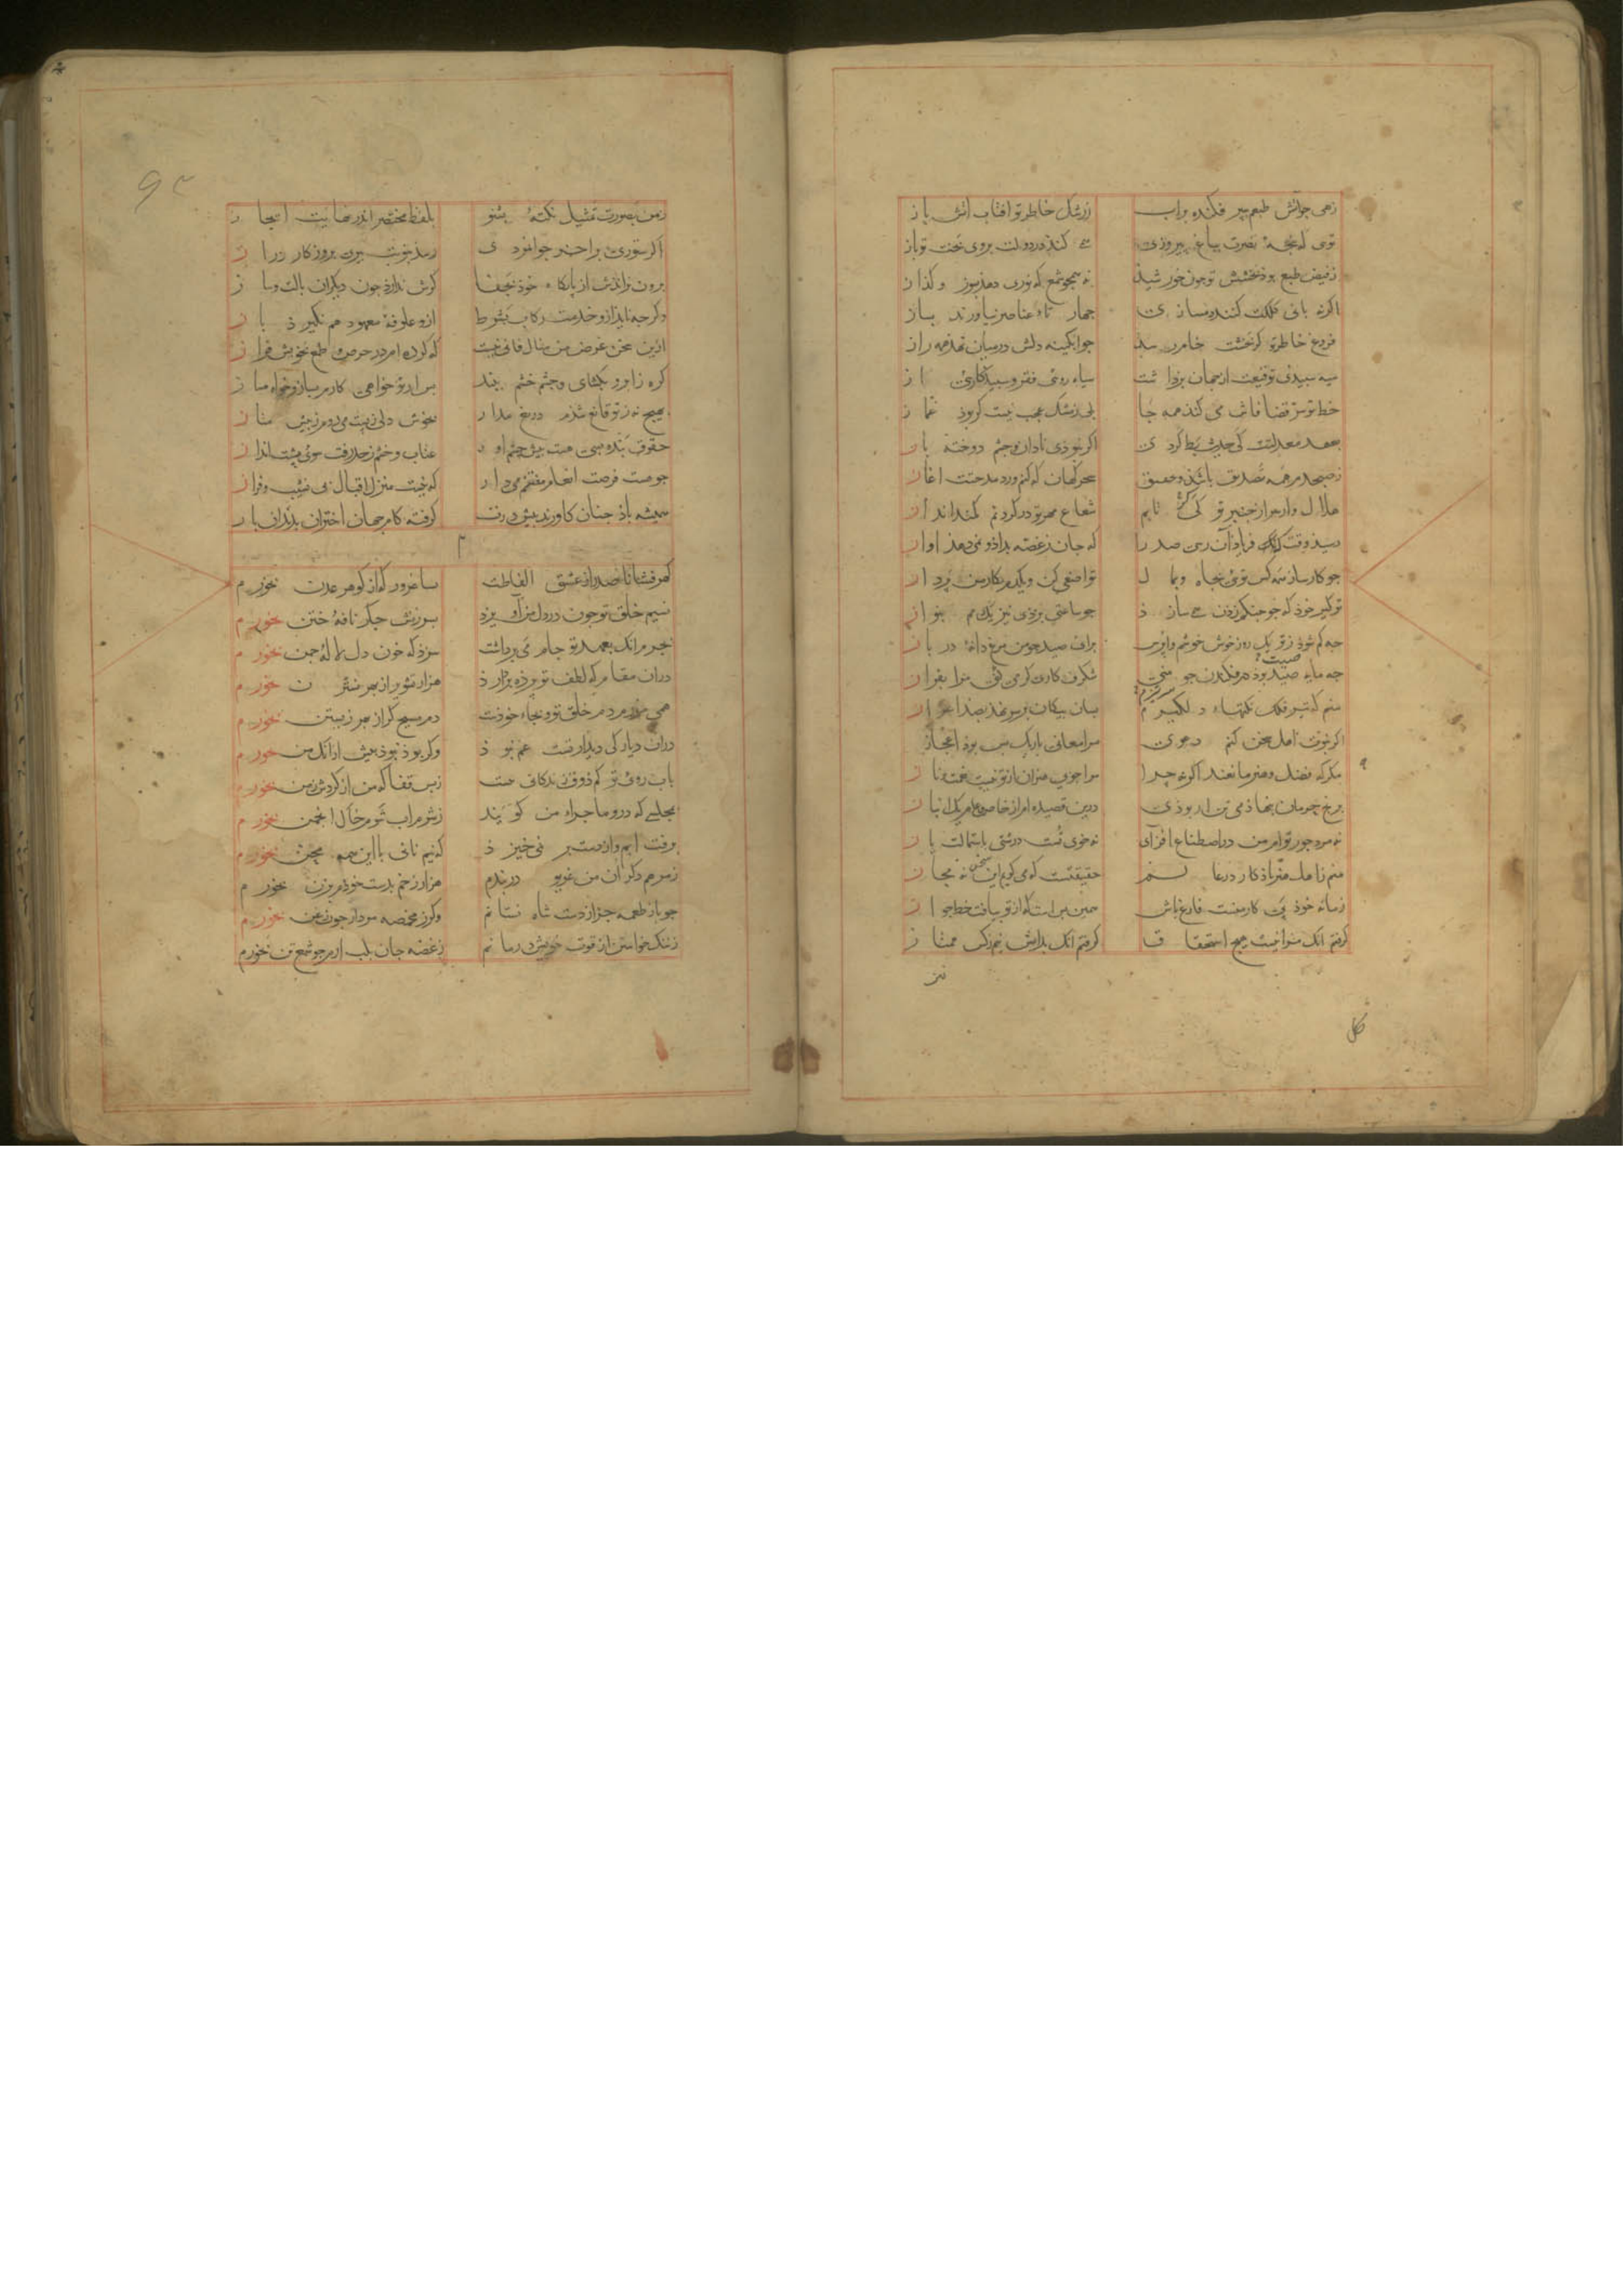 زهی جوآتش طبعم پیر فکنده براب زرشک خاطر تو افتاب اتش باز
توی که غنچهٔ نصرت بباغ پیروزی کند در دولت بروی بخت تو باز
زفیض طبع بوذ بخشش تو جون خورشیذ نه همجو شمع که نوری دهذ بسوز و کذاز
اکر نه بانی کلکت کننده سازی جهار تاء عناصر نیاورند بساز
فروغ خاطر تو کر بخشت خام رسذ جو ابکینه دلش در میان نهذ همه راز
سیه سبیدی توقیعت از جهان برداشت سیاه روی فقر و سبیدکاری از
خط تو سر قضا فاش می کند همه جا بلی زمشک عجب نیست کر بوذ غماز
بعهد معدلتت کی حدیث بط کردی اکر نبودی نادان و جشم دوخته باز
زصبحدم همه تصدیق باشذ و تحقیق سحرکهان که کنم ورد مدحتت اغاز
هلال وار جو از جنبر تو کی تابم شعاع مهر تو در کردنم کمند انداز
رسید وقت که فریاد آن رسی صدرا که جان زغصه بدادم نمی دهذ اواز
جو کارساز همه کس توی بجاه و بمال تواضعی کن و یکدم بکار من برداز
تو کیر خوذ که جو جنکم زدن می سازذ جو ساعتی بزدی نیز یک دمم بنواز
جه کم شوذ زتو یک روز خوش خوشم وابرس برای صید جو من مرغ دانهٔ در باز
جه مایه صیت بوذ در فکندن جو منی شکرف کاری کر می کنی مرا بفراز
منم که تیر فلک نکتهاء دلکیرم بسان بیکان بر سر نهذ بصد اعزاز
اکر بقوت اهل سخن کنم دعوی مرا معانی باریک بس بوذ اعجاز
مکر که فضل و هنر مانعند اکر نه جرا مرا جو دیکران از تو نیست نعمت و ناز
برنج جو مان بنهاذمی تن ار بودی درین قصیده ام از خاص و عام یک انباز
نه مرد جور توام من در اصطناع افزای نه خوی تست درشتی باستمالت یاز
منم زاهل هنر یاذکار در عالم حقیقتست که می کویم این سخن نه مجاز
زمانه خوذ بی کار منست فارغ باش همین بس است که از تو بیافت خط جواز
کرفتم انک مرا نیست هیچ استحقاق کرفتم انک بدانش نیم زکس ممتاز
نیز
زمن بصورت تمثیل نکتهٔ بشنو بلفظ مختصر اندر نهایت ایجاز
اکر ستوری بر اخر جوانمردی رسد بنوبت بیری بروزکار دراز
برون نراندش از بایکاه خوذ بجفا کرش ندارذ جون دیکران بالت و ساز
وکر جه نایذ ازو خدمت رکاب بشرط ازو علوفهٔ معهود هم نکیرذ باز
ازین سخن غرض من منال فانی نیست که کرده ام در حرص و طمع بخویش فراز
کره زابرو بکشای و جشم خشم ببند بس ار تو خواهی کارم بساز و خواه مساز
بهیج نه زتو قانع شذم دریغ مدار بخوش دلی زبیت می دوم زبیش متاز
حقوق بنده بسی هست بیش جشم اور عتاب و خشم زحد رفت سوی بشت انداز
جو هست فرصت انعام مغتنم می دار که نیست منزل اقبال بی نشیب و فراز
همیشه باذ جنان کاورند بیش درت کرفته کام جهان اختران بدندان باز
م
کهر فشانا صدرا زعشق الفاظت بسا غرور که از کوهر عدن بخورم
نسیم خلق تو جون در دل من آویزذ بسرزنش جکر نافهٔ ختن بخورم
بجرم انک بعهد تو جام می برداشت سزذ که خون دل لالهٔ جمن بخورم
دران مقام که لطف تو برده بردارذ هزار تشویر از بهر نسترن بخورم
همی خورم دم خلق تو و بجاء خوذست دم مسیح کر از بهر زیستن بخورم
دران دیار کی دیدار تست غم نبوذ وکر بوذ نبوذ بیش از انک من بخورم
باب روی تو کم ذوق زندکانی هست زبس قفا که من از کردش زمن بخورم
بمجلسی که درو ماجراء من کویند زشرم اب شوم خاک انجمن بخورم
برفت ابم و از دست بر نمی خیزذ که نیم نانی با این همه محن بخورم
زمرهم دکران من غریو دربندم هزار زخم بدست خوذم بزن بخورم
جو باز طعمه جز از دست شاه نستانم وکر ز مخمصه مردار جون زغن بخورم
زننک خواستن از قوت خویش درمانم زغصه جان بلب ارم جو شمع تن بخورم